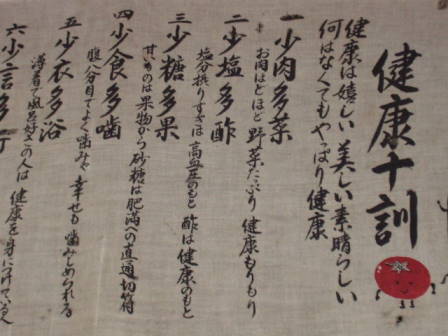 健康十訓
健康は嬉しい 美しい 素晴らしい
何はなくてもやっぱり健康
一 少肉多菜
お肉ほどほど 野菜たっぷり 健康もりもり
二 少塩多酢
塩分摂りすぎは 高血圧のもと 酢は健康のもと
三 少糖多果
甘いものは果物から 砂糖は肥満への直通切符
四 少食多嚙
腹八分目でよく嚙みゃ 幸せも 嚙みしめられる
五 少衣多浴
薄着で風呂好きの人は 健康を身につけている人
六 少言多行